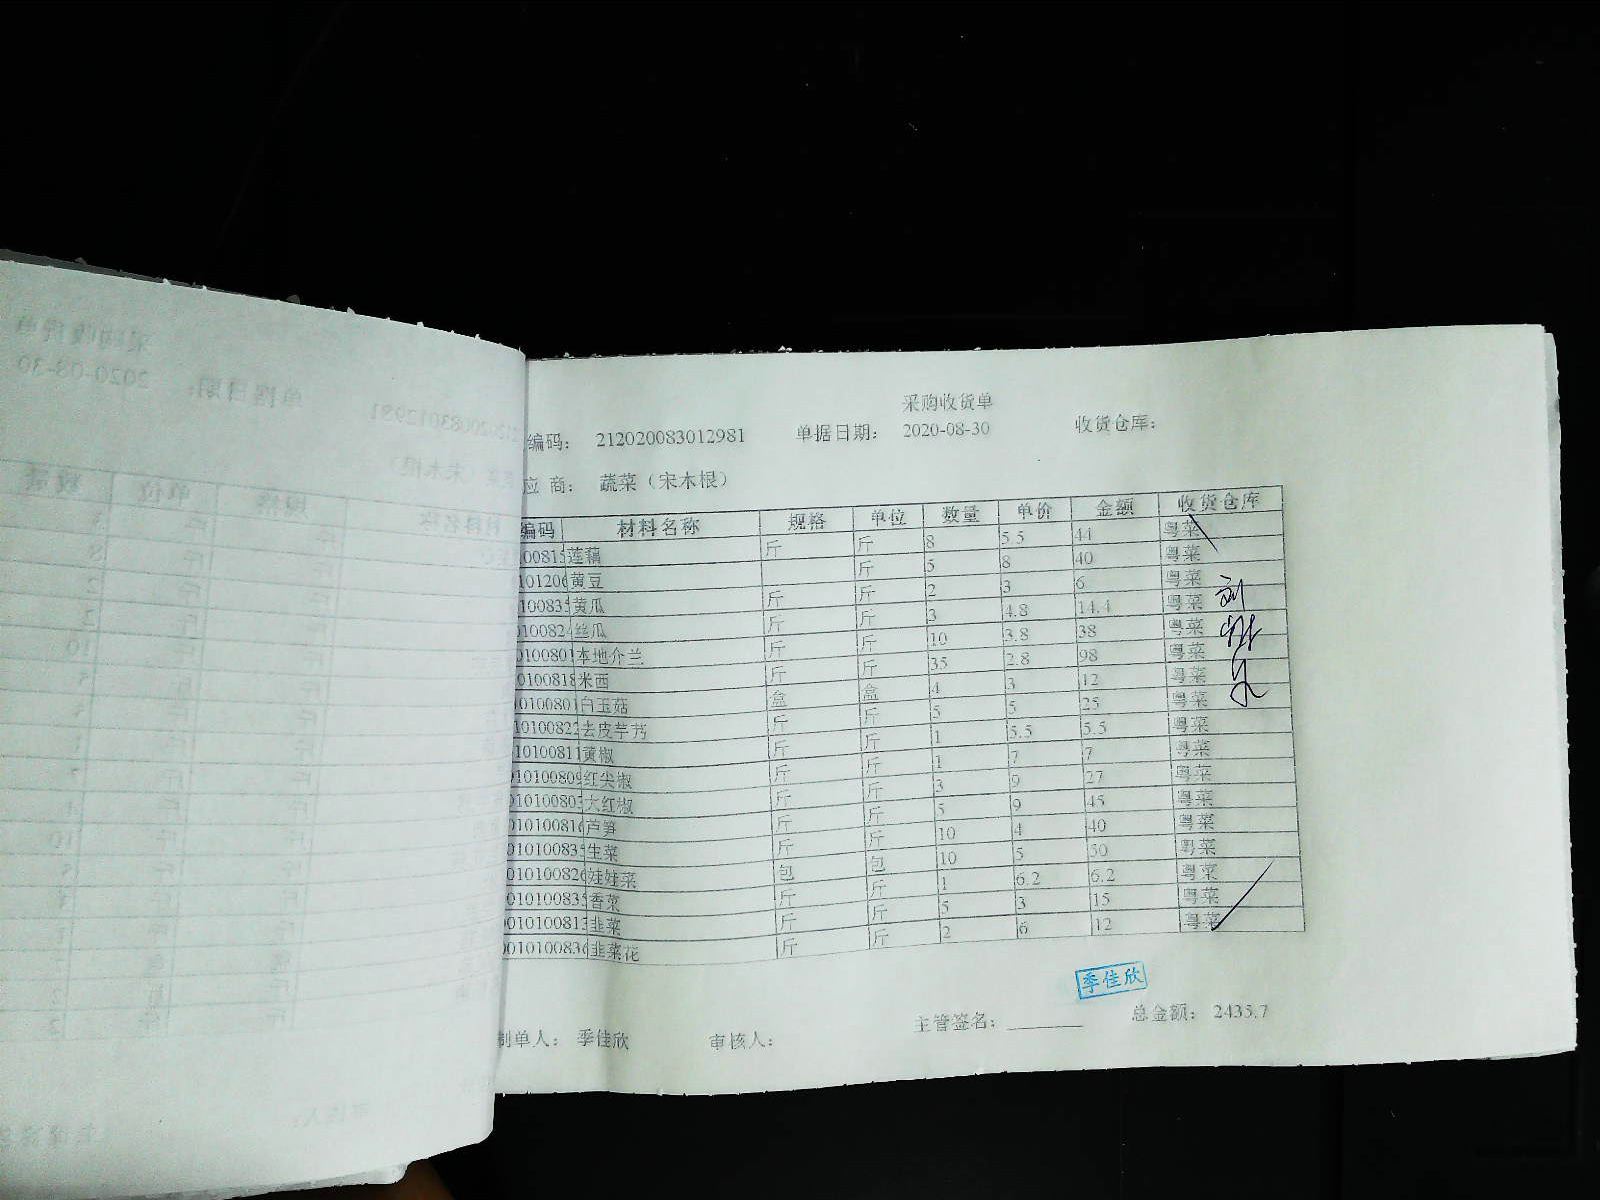 采购收货单
编码： 212020083012981 单据日期： 2020-08-30 收货仓库：
应 商： 蔬菜（宋木根）
编码 材料名称 规格 单位 数量 单价 金额 收货仓库
00815 莲藕 斤 斤 8 5.5 44 粤菜
101206 黄豆 斤 5 8 40 粤菜
0100835 黄瓜 斤 斤 2 3 6 粤菜
0100824 丝瓜 斤 斤 3 4.8 14.4 粤菜
0100801 本地介兰 斤 斤 10 3.8 38 粤菜
0100818 米西 斤 斤 35 2.8 98 粤菜
0100801 白玉菇 盒 盒 4 3 12 粤菜
10100822 去皮芋艿 斤 斤 5 5 25 粤菜
10100811 黄椒 斤 斤 1 5.5 5.5 粤菜
10100809 红尖椒 斤 斤 1 7 7 粤菜
10100803 大红椒 斤 斤 3 9 27 粤菜
10100816 芦笋 斤 斤 5 9 45 粤菜
010100835 生菜 斤 斤 10 4 40 粤菜
010100826 娃娃菜 包 包 10 5 50 粤菜
010100835 香菜 斤 斤 1 6.2 6.2 粤菜
010100813 韭菜 斤 斤 5 3 15 粤菜
010100836 韭菜花 斤 斤 2 6 12 粤菜
季佳欣
制单人： 季佳欣 审核人： 主管签名： 总金额： 2435.7